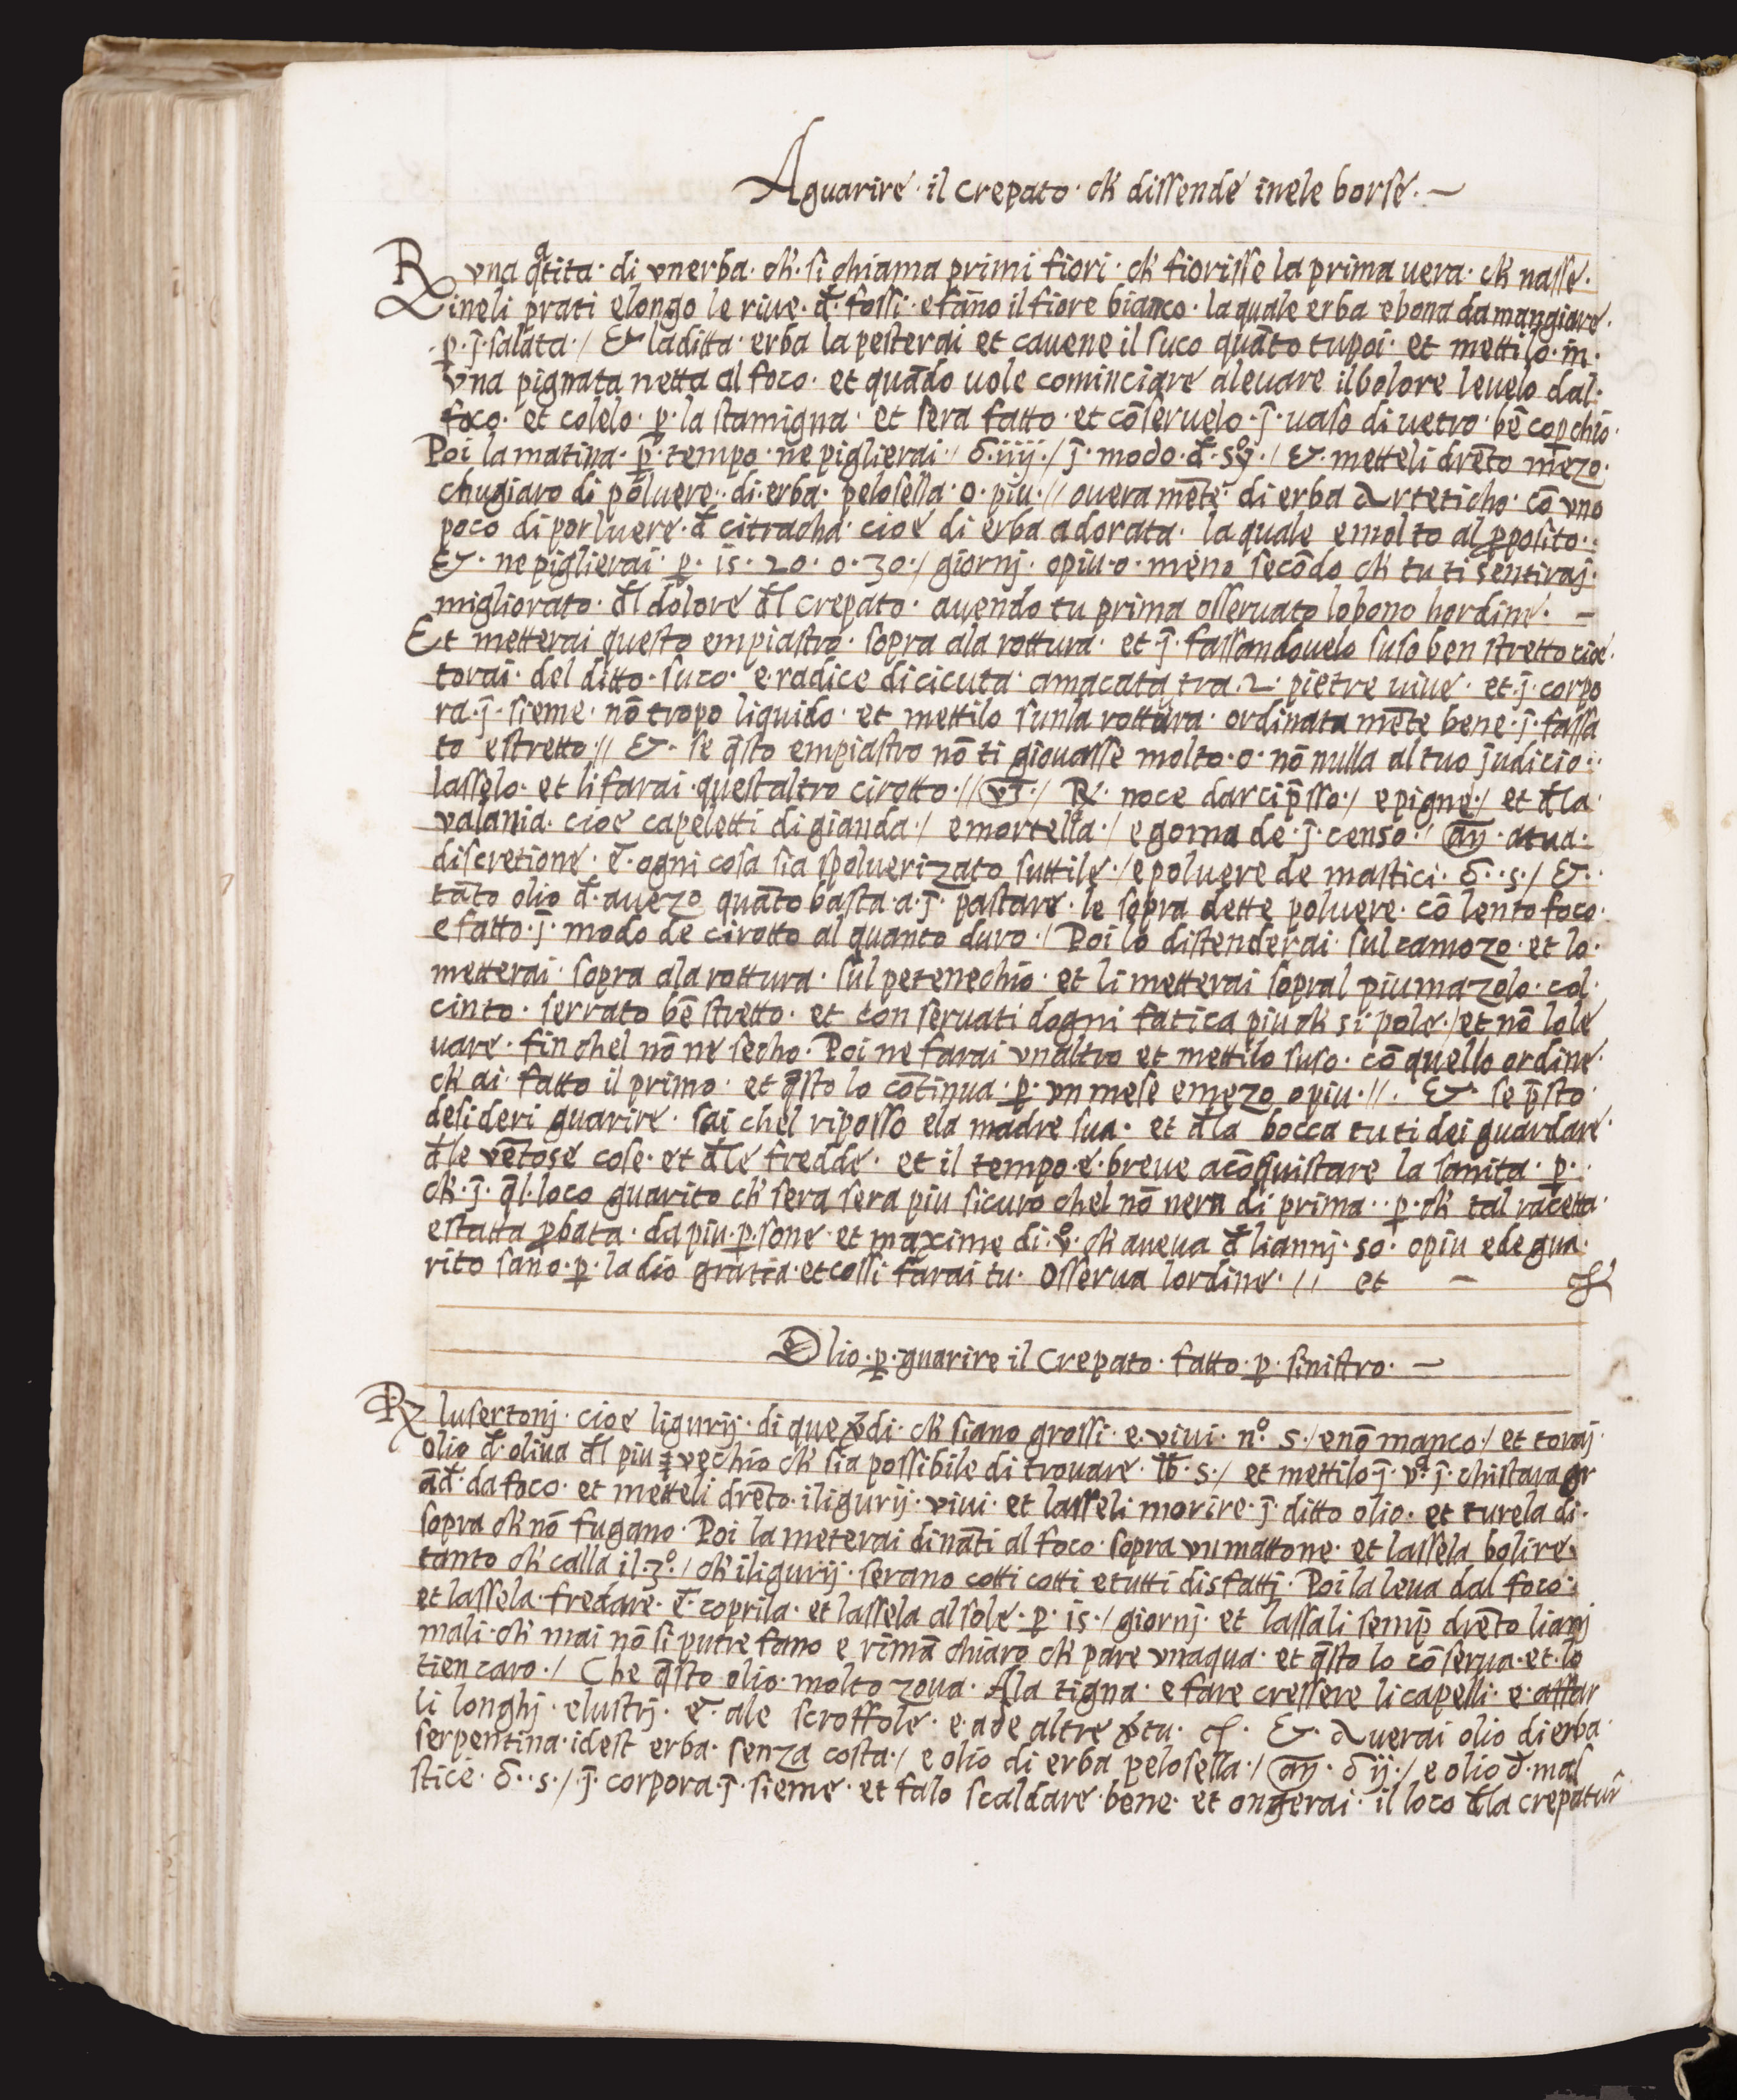 Aguarire · il crepato · ch dissende inele borse · —
R una q̄tita · di unerba · ch · si chiama primi fiori · ch fiorisse la prima uera · ch nasse ·
ineli prati elongo le riue · đ · fossi · e fāno il fiore bianco · la quale erba e bona da mangiare ·
p · j̄ · salata · / Et laditta · erba la pesterai et cauene il suco quāto tu poi · et mettilo · in ·
una pignata netta al foco · et quādo uole cominciare aleuare il bolore leuelo dal ·
foco · et colelo · p · la stamigna · et sera fatto · et cōseruelo · j̄ · uaso di uetro · bē copchio ·
Poi la matina · p · tempo · ne piglierai · / ō · iiij · / j̄ · modo · đ · / Et · metteli drēto mezo ·
chugiaro di poluere · di · erba · pelosella · o · piu · // ouera mēte · di erba Arteticho · cō uno
poco di porluere · đ citracha · cioe di erba adorata · la quale e molto al pposito · :
Et · ne piglierai · p · 15 · 20 · o · 30 · / giornj · o piu · o · meno secōdo ch tu ti sentiraj ·
migliorato · đl dolore đl crepato · auendo tu prima osseruato lo bono hordine · —
Et metterai questo empiastro · sopra ala rottura · et · j̄ · fassandouelo suso ben stretto cioe ·
torai · del ditto · suco · e radice di cicuta · amacata tra · 2 · pietre uiue · et · j̄ · corpo
ra · j̄ · sieme · nō tropo liquido · et mettilo sunla rottura · ordinata mēte bene · j̄ · fassa
to e stretto // Et · se q̄sto empiastro nō ti giouasse molto · o · nō nulla al tuo judicio · :
lasselo · et li farai · quest altro cirotto · // / R · noce darcip̄sso · / e pigne · / et đla ·
valania · cioe capeletti di gianda · / e mortella · / e goma de · j̄ · censo · / añ · atua ·
discretione · e · ogni cosa sia spoluerizato suttile · / e poluere de mastici · ō · · 5 · / Et ·
tāto olio đ · auezo quāto basta · a · j̄ · pastare · le sopra dette poluere · cō lento foco ·
e fatto · j̄ · modo de cirotto al quanto duro · / Poi lo distenderai · sul camozo · et lo ·
metterai · sopra ala rottura · sul petenechio · et li metterai sopral piumazolo · col ·
cinto · serrato bē stretto · et conseruati dogni fatica piu ch si · pole · / et nō lo le
uare · fin chel nō ne secho · Poi ne farai unaltro et mettilo suso · cō quello ordine ·
ch ai · fatto il primo · et q̄sto lo cōtinua · p · un mese e mezo o piu · // · Et · se p̄sto ·
desideri guarire · sai chel riposso e la madre sua · et đla bocca tu ti dei guardare ·
đle vētose cose · et đle fredde · et il tempo · e · breue acōquistare la sanita · p ·
ch · j̄ · q̄l · loco guarito ch sera sera piu sicuro chel nō nera di prima · · p · ch tal racetta ·
e statta pbata · da piu · p · sone · et maxime di · v̊ · ch aueua đ li annj · 50 · o piu ed e gua ·
rito sano · p · la dio gratia · et cossi farai tu · Osserua lordine · // et —
Olio · p · guarire il Crepato · fatto · p · sinistro · —
R lusertonj · cioe ligurij · di que di · ch siano grossi · e · vivi · n̊ · 5 · / e nō manco · / et toraj ·
olio đ · oliua đl piu vechio ch sia possibile di trouare · lb · 5 · / et mettilo · j̄ · v̊ · j̄ · chistara gr
ād · da foco · et metteli drēto · i ligurij · vivi · et lasseli morire · j̄ · ditto olio · et turela di ·
sopra ch nō fugano · Poi la meterai dināti al foco · sopra un mattone · et lassela bolire
tanto ch calla il · 3̊ · / ch i ligurij · serano cotti cotti e tutti disfattj · Poi la leua dal foco · :
et lassela · fredare · e · coprila · et lassela al sole · p · 15 · / giornj · et lassali semp̄ drēto li anj
mali · ch mai nō si putrefano e rimā chiaro ch pare unaqua · et q̄sto lo cōserua · et · lo
tien caro · / Che q̄sto olio · molto zoua · Ala tigna · e fare cressere li capelli · e · affar
li longhj · e lustrj · e · ale scroffole · e · ade altre · Et · Auerai olio di erba ·
serpentina · idest erba · senza costa · / e olio di erba pelosella · / añ · ō ij · / e olio đ · mas
stice · ō · · 5 · / j̄ · corpora · j̄ · sieme · et falo scaldare · bene · et ongerai · il loco đla crepatur